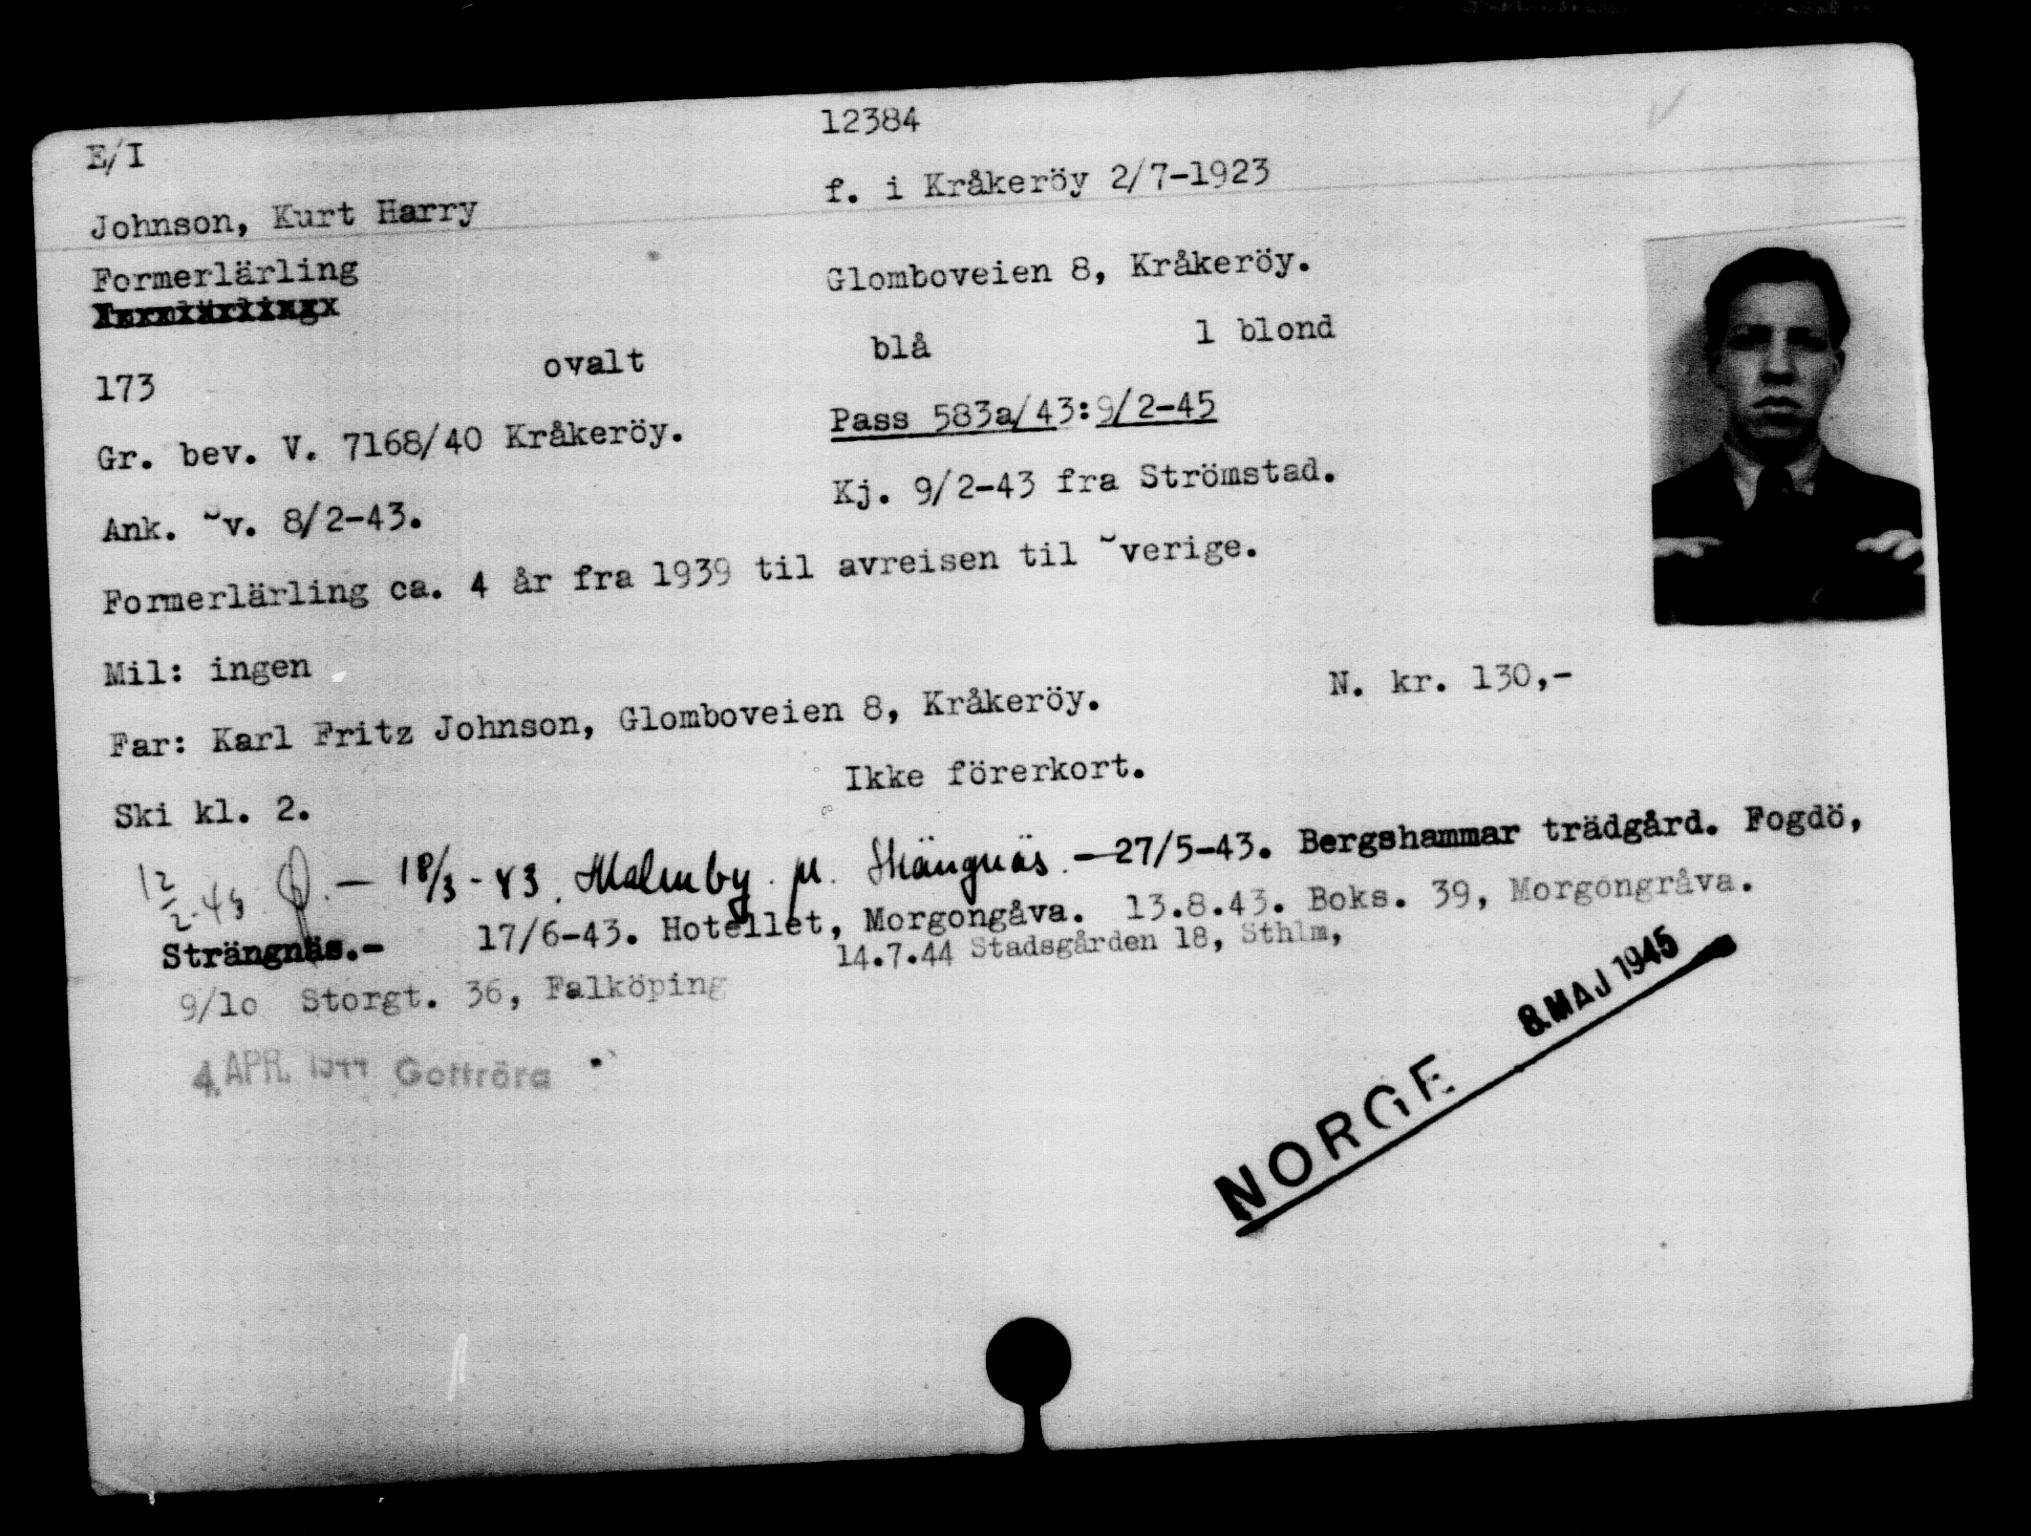 12384
E/I
f. i Kråkeröy 2/7-1923
Johnson, Kurt Harry
Formerlärling
Glomboveien 8, Kråkeröy.
173 ovalt blå l blond
Gr. bev. V. 7168/40 Kråkeröy. Pass 583a/43:9/2-45
Ank. ˘v. 8/2-43. Kj. 9/2-43 fra Strömstad.
Formerlärling ca. 4 år fra 1939 til avreisen til ˘verige.
Mil: ingen
Far: Karl Fritz Johnson, Glomboveien 8, Kråkeröy. N. kr. 130,-
Ski kl. 2. Ikke förerkort.
12/2-43 Ö. — 18/3-43. Malmby pr. Strängnäs. -27/5-43. Bergshammar trädgård. Fogdö,
Strängnäs.- 17/6-43. Hotellet, Morgongåva. 13.8.43. Boks. 39, Morgongråva.
9/lo Storgt. 36, Falköping 14.7.44 Stadsgården 18, Sthlm,
4. APR. 1944 Gottröra
NORGE 8. MAJ 1945